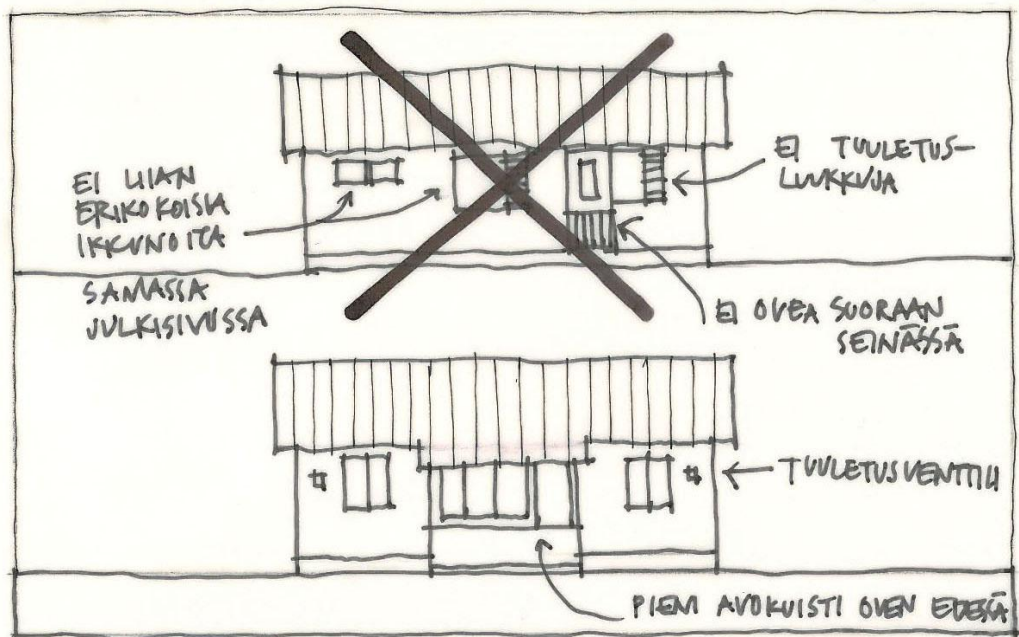 EI LIIAN
ERIKOKOISIA
IKKUNOITA
SAMASSA
JULKISIVUSSA
EI TUULETUS-
LUUKKUJA
EI OVEA SUORAAN
SEINÄSSÄ
TUULETUSVENTTIILI
PIENI AVOKUISTI OVEN EDESSÄ